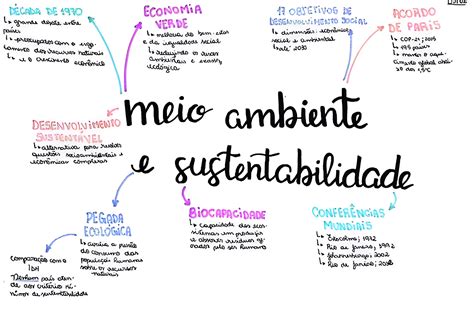 DÉCADA DE 1970
↳ grande debate entre países
↳ preocupações com o esgotamento dos recursos naturais
↳ e o crescimento econômico
ECONOMIA VERDE
↳ melhoria do bem-estar e da igualdade social
↳ reduzindo os riscos ambientais e escassez ecológica
17 OBJETIVOS DE DESENVOLVIMENTO SOCIAL
↳ dimensões: econômica social e ambiental
↳ até 2030
ACORDO DE PARIS
↳ COP-21; 2015
↳ 195 países
↳ manter o aquecimento global abaixo de 1,5°C
DESENVOLVIMENTO SUSTENTÁVEL
↳ alternativa para resolver questões socioambientais e econômicas complexas
meio ambiente
e sustentabilidade
PEGADA ECOLÓGICA
↳ avalia a pressão do consumo das populações humanas sobre os recursos naturais
comparação com o IDH
Nenhum país atende ao critério mínimo de sustentabilidade
BIOCAPACIDADE
↳ capacidade dos ecossistemas em produzir e absorver resíduos gerados pelo ser humano
CONFERÊNCIAS MUNDIAIS
↳ Estocolmo; 1972
↳ Rio de janeiro; 1992
↳ Johannesburgo; 2002
↳ Rio de janeiro; 2012